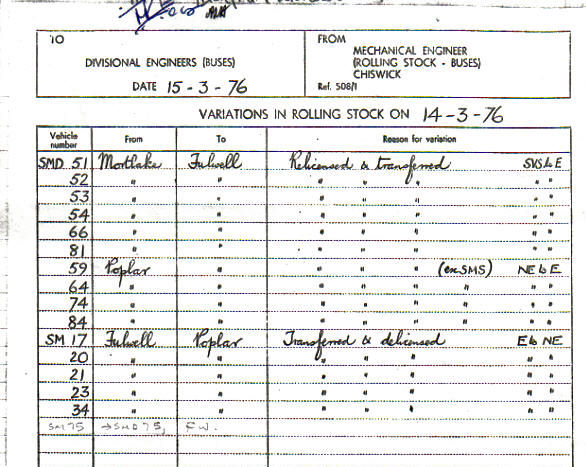 TO
DIVISIONAL ENGINEERS (BUSES)
DATE 15-3-76
FROM
MECHANICAL ENGINEER
(ROLLING STOCK - BUSES)
CHISWICK
Ref. 508/1
VARIATIONS IN ROLLING STOCK ON 14-3-76
Vehicle number From To Reason for variation
SMD 51 Mortlake Fulwell Relicensed & transferred SVS to E
52 " " " " " " "
53 " " " " " " "
54 " " " " " " "
66 " " " " " " "
81 " " " " " " "
59 Poplar " " " " (ex SMS) NE to E
64 " " " " " " " "
74 " " " " " " " "
84 " " " " " " " "
SM 17 Fulwell Poplar Transferred & delicensed E to NE
20 " " " " " " "
21 " " " " " " "
23 " " " " " " "
34 " " " " " " "
SM75 → SMD75, FW.